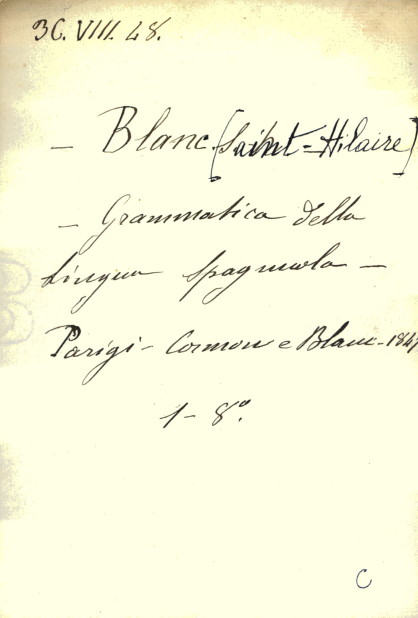 3C. VIII. 48.
— Blanc [Saint-Hilaire]
— Grammatica della
lingua spagnuola —
Parigi - Cormon e Blanc -
1 - 8º.
C